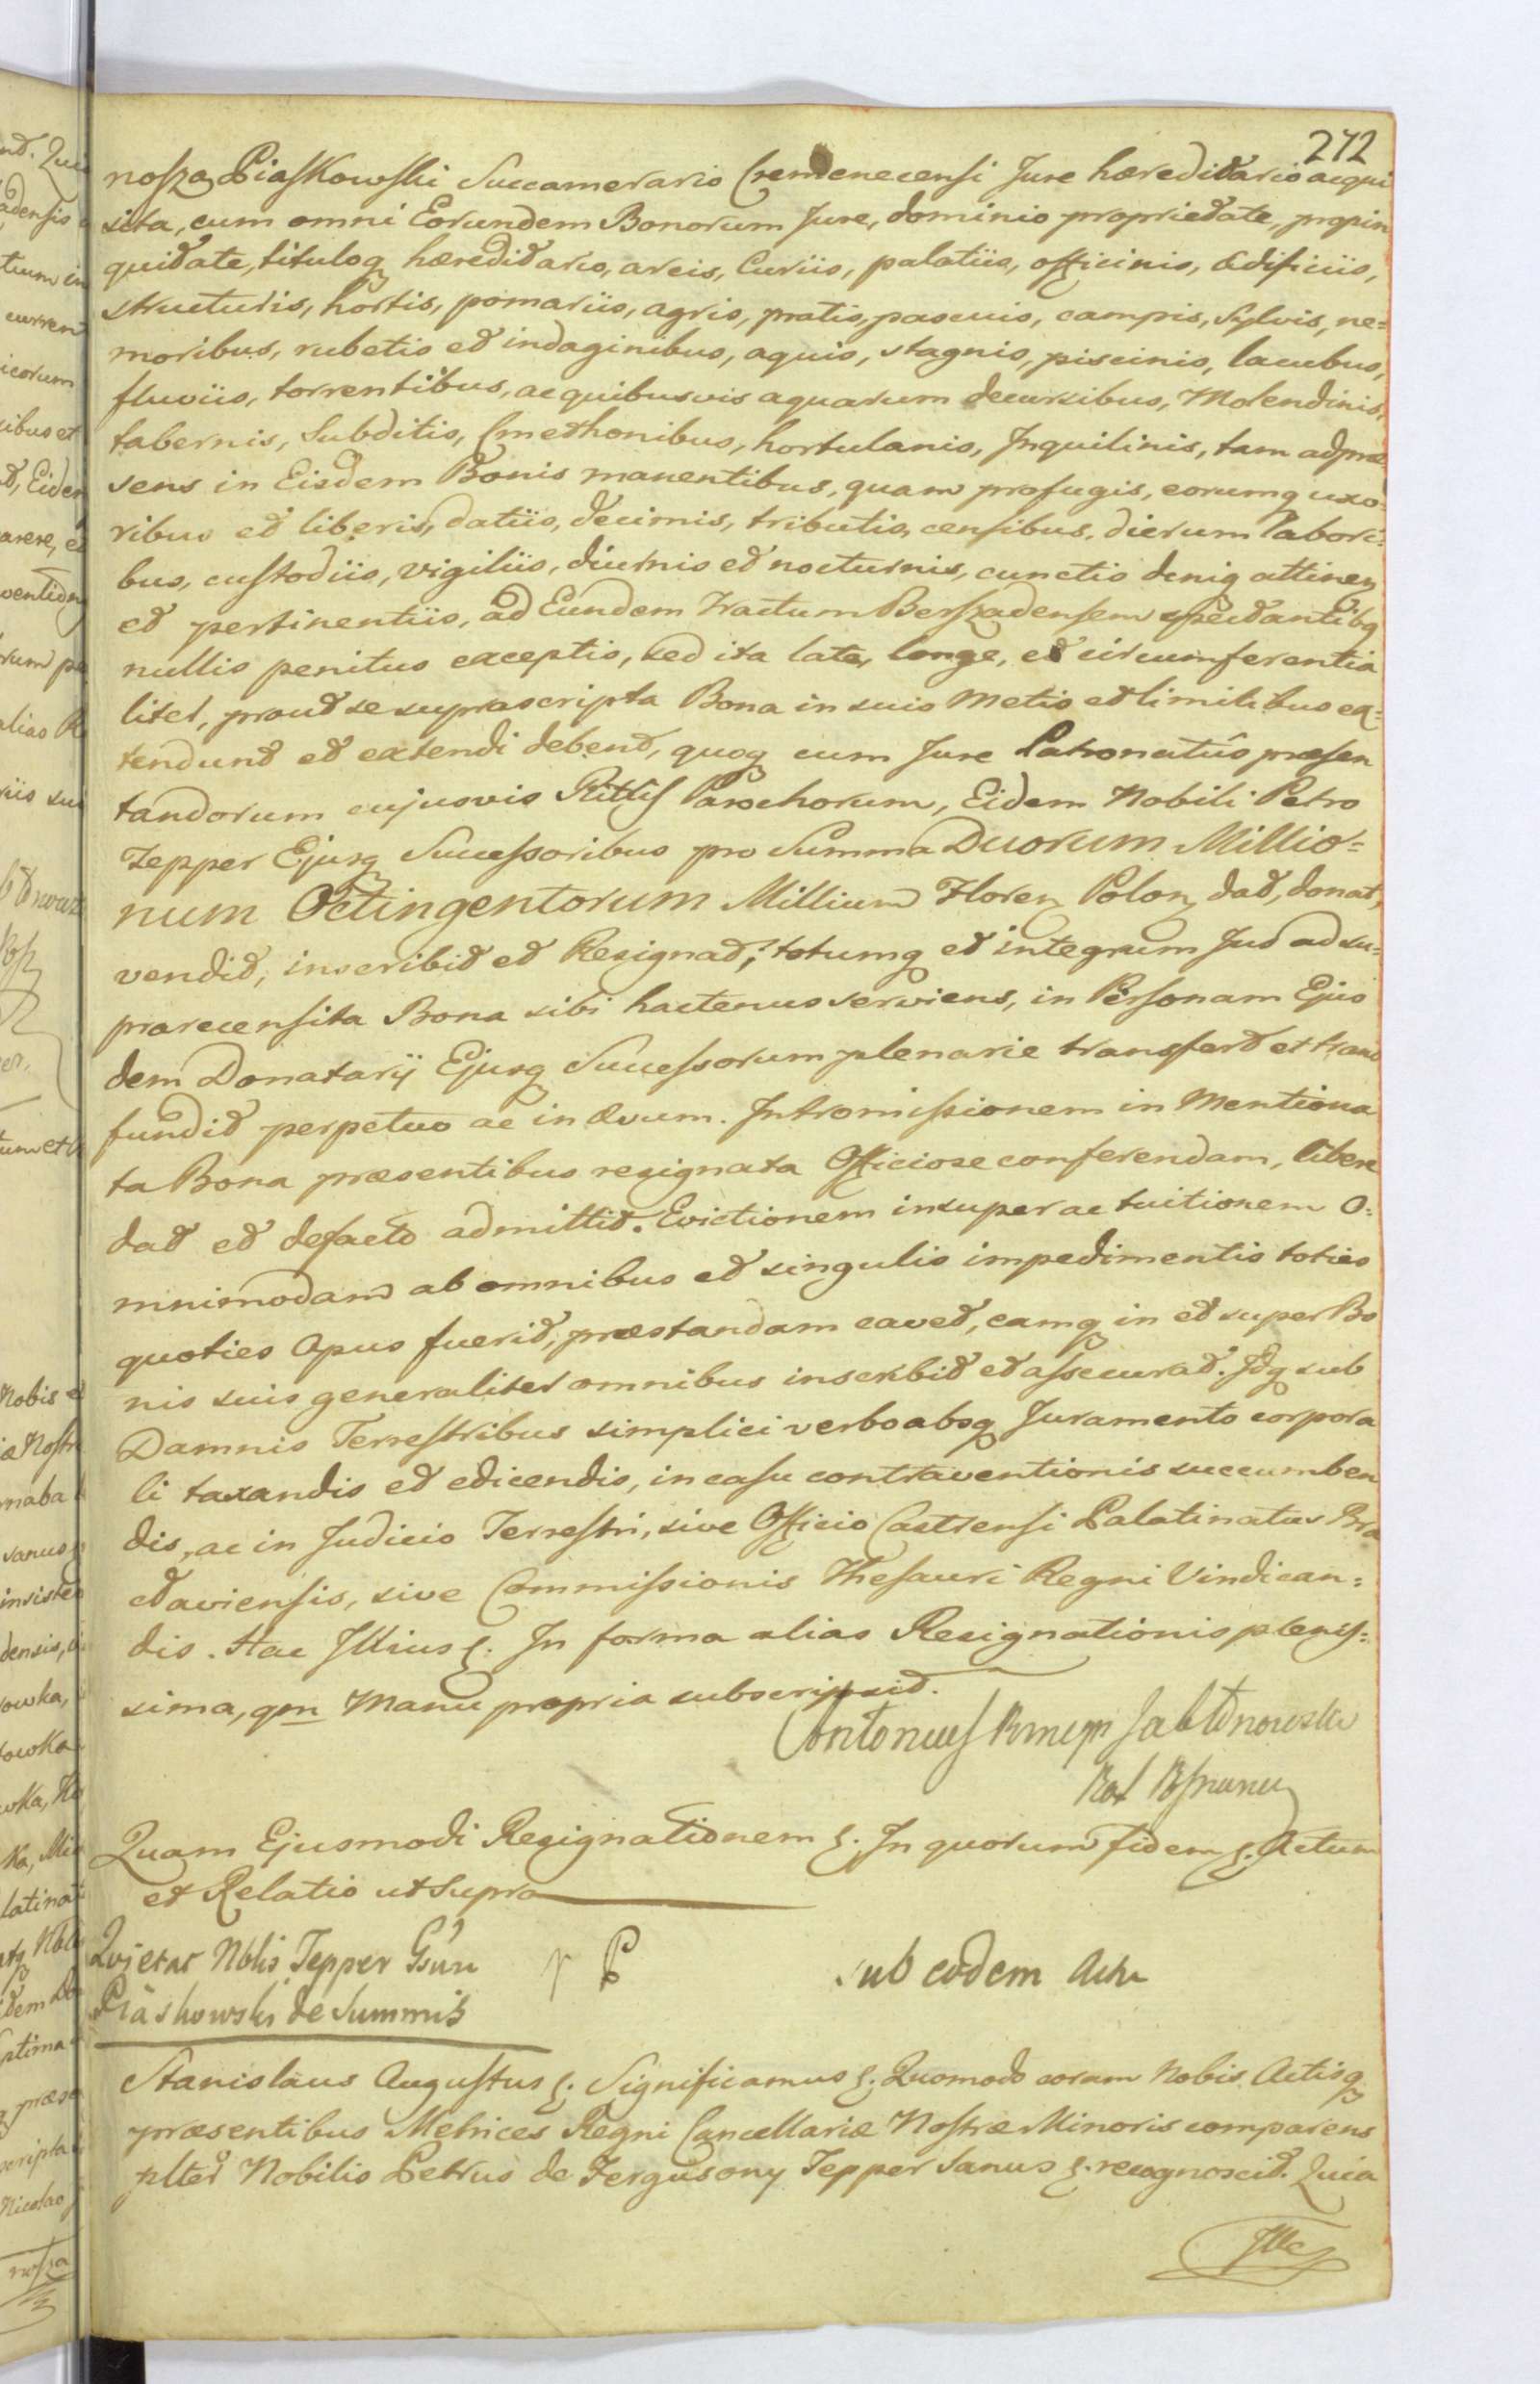 272
nosza Piaskowski Succamerario Cremenecensi Jure hæreditario acqui
sita, cum omni Eorundem Bonorum Jure, dominio proprietate, propin
quitate, tituloq hæreditario, arcis, Curiis, palatiis, officinis, ædificiis,
structuris, hortis, pomariis, agris, pratis, pascuis, campis, Sylvis, ne=
moribus, rubetis et indaginibus, aquis, stagnis, piscinis, lacubus,
fluviis, torrentibus, ac quibusvis aquarum decursibus, Molendinis,
tabernis, Subditis, Cmethonibus, hortulanis, Inquilinis, tam adpræ
sens in Eisdem Bonis manentibus, quam profugis, eorumq uxo
ribus et liberis, datiis, decimis, tributis, censibus, dierum labori=
bus, custodiis, vigiliis, diurnis et nocturnis, cunctis deniq attinen
et pertinentiis, ad Eundem Tractum Berszadensem spectantibq
nullis penitus exceptis, sed ita late, longe, et circumferentia
liter, prout se suprascripta Bona in suis Metis et limitibus ex=
tendunt et extendi debent, quoq cum Jure Patronatûs præsen
tandorum cujusvis Ritûs Parochorum, Eidem Nobili Petro
Tepper Ejusq Successoribus pro Summa Duorum Millio=
num Octingentorum Millium Floren Polon, dat, donat,
vendit, inscribit et Resignat; totumq et integrum Jus ad su=
prarecensita Bona sibi hactenus serviens, in Personam Ejus
dem Donatarij Ejusq Successorum plenarie transfert et trans
fundit perpetuo ac in ævum. Intromissionem in Mentiona
ta Bona præsentibus resignata Officiose conferendam, libere
dat et defacto admittit. Evictionem insuper ac tuitionem O=
mnimodam ab omnibus et singulis impedimentis toties
quoties Opus fuerit, præstandam cavet, eamq in et super Bo
nis suis generaliter omnibus inscribit et assecurat. Idq sub
Damnis Terrestribus simplici verbo absq Juramento corpora
li taxandis et edicendis, in casu contraventionis succumben
dis, ac in Judicio Terrestri, sive Officio Castrensi Palatinatus Bra
claviensis, sive Commissionis Thesauri Regni Vindican=
dis. Hac Illius &. In forma alias Resignationis plenis=
sima, qm Manu propria subscripsit.
Antonius Jabłonowski
Quam Ejusmodi Resignationem &. In quorum fidem &. Actum
et Relatio ut supra
Quietat Nblis Tepper Gsum
Piaskowski de Summis
Sub eodem Actu
Stanislaus Augustus &. Significamus &. Quomodo coram Nobis Actisq
præsentibus Metrices Regni Cancellariæ Nostræ Minoris comparens
plter Nobilis Petrus de Fergusony Tepper Sanus &. recognoscit. Quia
Ille